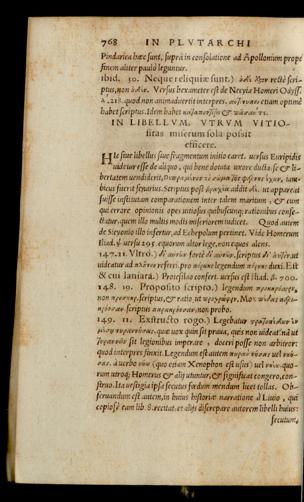 768 IN PLVTARCHI
Pindarica hæc sunt, suprà in consolatione ad Apollonium propè
finem aliter paulò leguntur.
ibid. 30. Neque reliquiæ sunt.) rectè scri-
ptus, non Versus hexameter est de Necyia Homeri Odyss.
λ. 218. quod non animaduertit interpres. etiam optimè
habet scriptus. Idem habet
IN LIBELLVM, VTRVM VITIO-
sitas miserum sola possit
efficere.
Hic siue libellus siue fragmentum initio caret. versus Euripidis
videtur esse de aliquo, qui bona dotata uxore ducta se & li-
bertatem uendiderit, iam-
bicus fuerit senarius. Scriptus post addit ut appareat
fuisse institutam comparationem inter talem maritum, & eum
qui errore opinionis opes uitiosus quibuscunq; rationibus conse-
ctatur, quem illo multis modis miseriorem iudicet. Quod autem
de Sicyonio illo infertur, ad Echepolum pertinet. Vide Homerum
Iliad. ψ uersu 295. equorum altor lege, non equos alens.
147. 21. Vltrò.) fortè scriptus ut
uideatur ad referri. pro legendum duxi. Est
& cui laniata.) Protesilao confert. uersus est Iliad. β. 700.
148. 29. Proposito scripto.) legendum
non scriptus, & ratio, ut Mox
scriptus non probo.
149. 11. Exstructo rogo.) Legebatur
quæ uox quin sit praua, quis non uideat? nā ut
sit legionibus imperare, doceri posse non arbitror:
quod interpres finxit. Legendum est autem uel
à uerbo (quo etiam Xenophon est usus) uel quo-
rum utroq; Homerus & alij utuntur, & significat congero, con-
struo. Ita uestigia ipsa secutus fœdum mendum licet tollas. Ob-
seruandum est autem, in huius historiæ narratione à Liuio, qui
copiosè eam lib. 8. recitat, et alijs discrepare autorem libelli huius:
secutum,